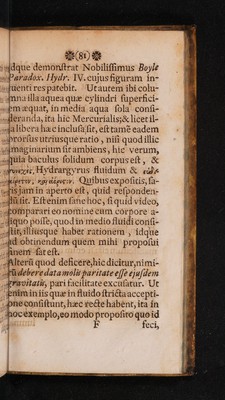 (81)
idque demonstrat Nobilissimus Boyle
Paradox. Hydr. IV. cujus figuram in-
tuenti res patebit. Ut autem ibi colu-
mna illa aquea quæ cylindri superfici-
em æquat, in media aqua sola consi-
deranda, ita hic Mercurialis; & licet il-
la libera hæc inclusa sit, est tamẽ eadem
prorsus utriusque ratio, nisi quod illic
imaginarium sit ambiens, hic verum,
quia baculus solidum corpus est, &
Hydrargyrus fluidum &
Quibus expositis, sa-
tis jam in aperto est, quid responden-
dum sit. Est enim sane hoc, si quid video,
comparari eo nomine cum corpore a-
liquo posse, quod in medio fluidi consi-
stit, illiusque haber rationem, idque
ad obtinendum quem mihi proposui
finem sat est.
Alterũ quod deficere, hic dicitur, nimi-
rũ debere data molis paritate esse ejusdem
gravitatis, pari facilitate excusatur. Ut
enim in iis quæ in fluido stricta accepti-
one consistunt, hæc recte habent, ita in
hoc exemplo, eo modo proposito quo id
F feci,